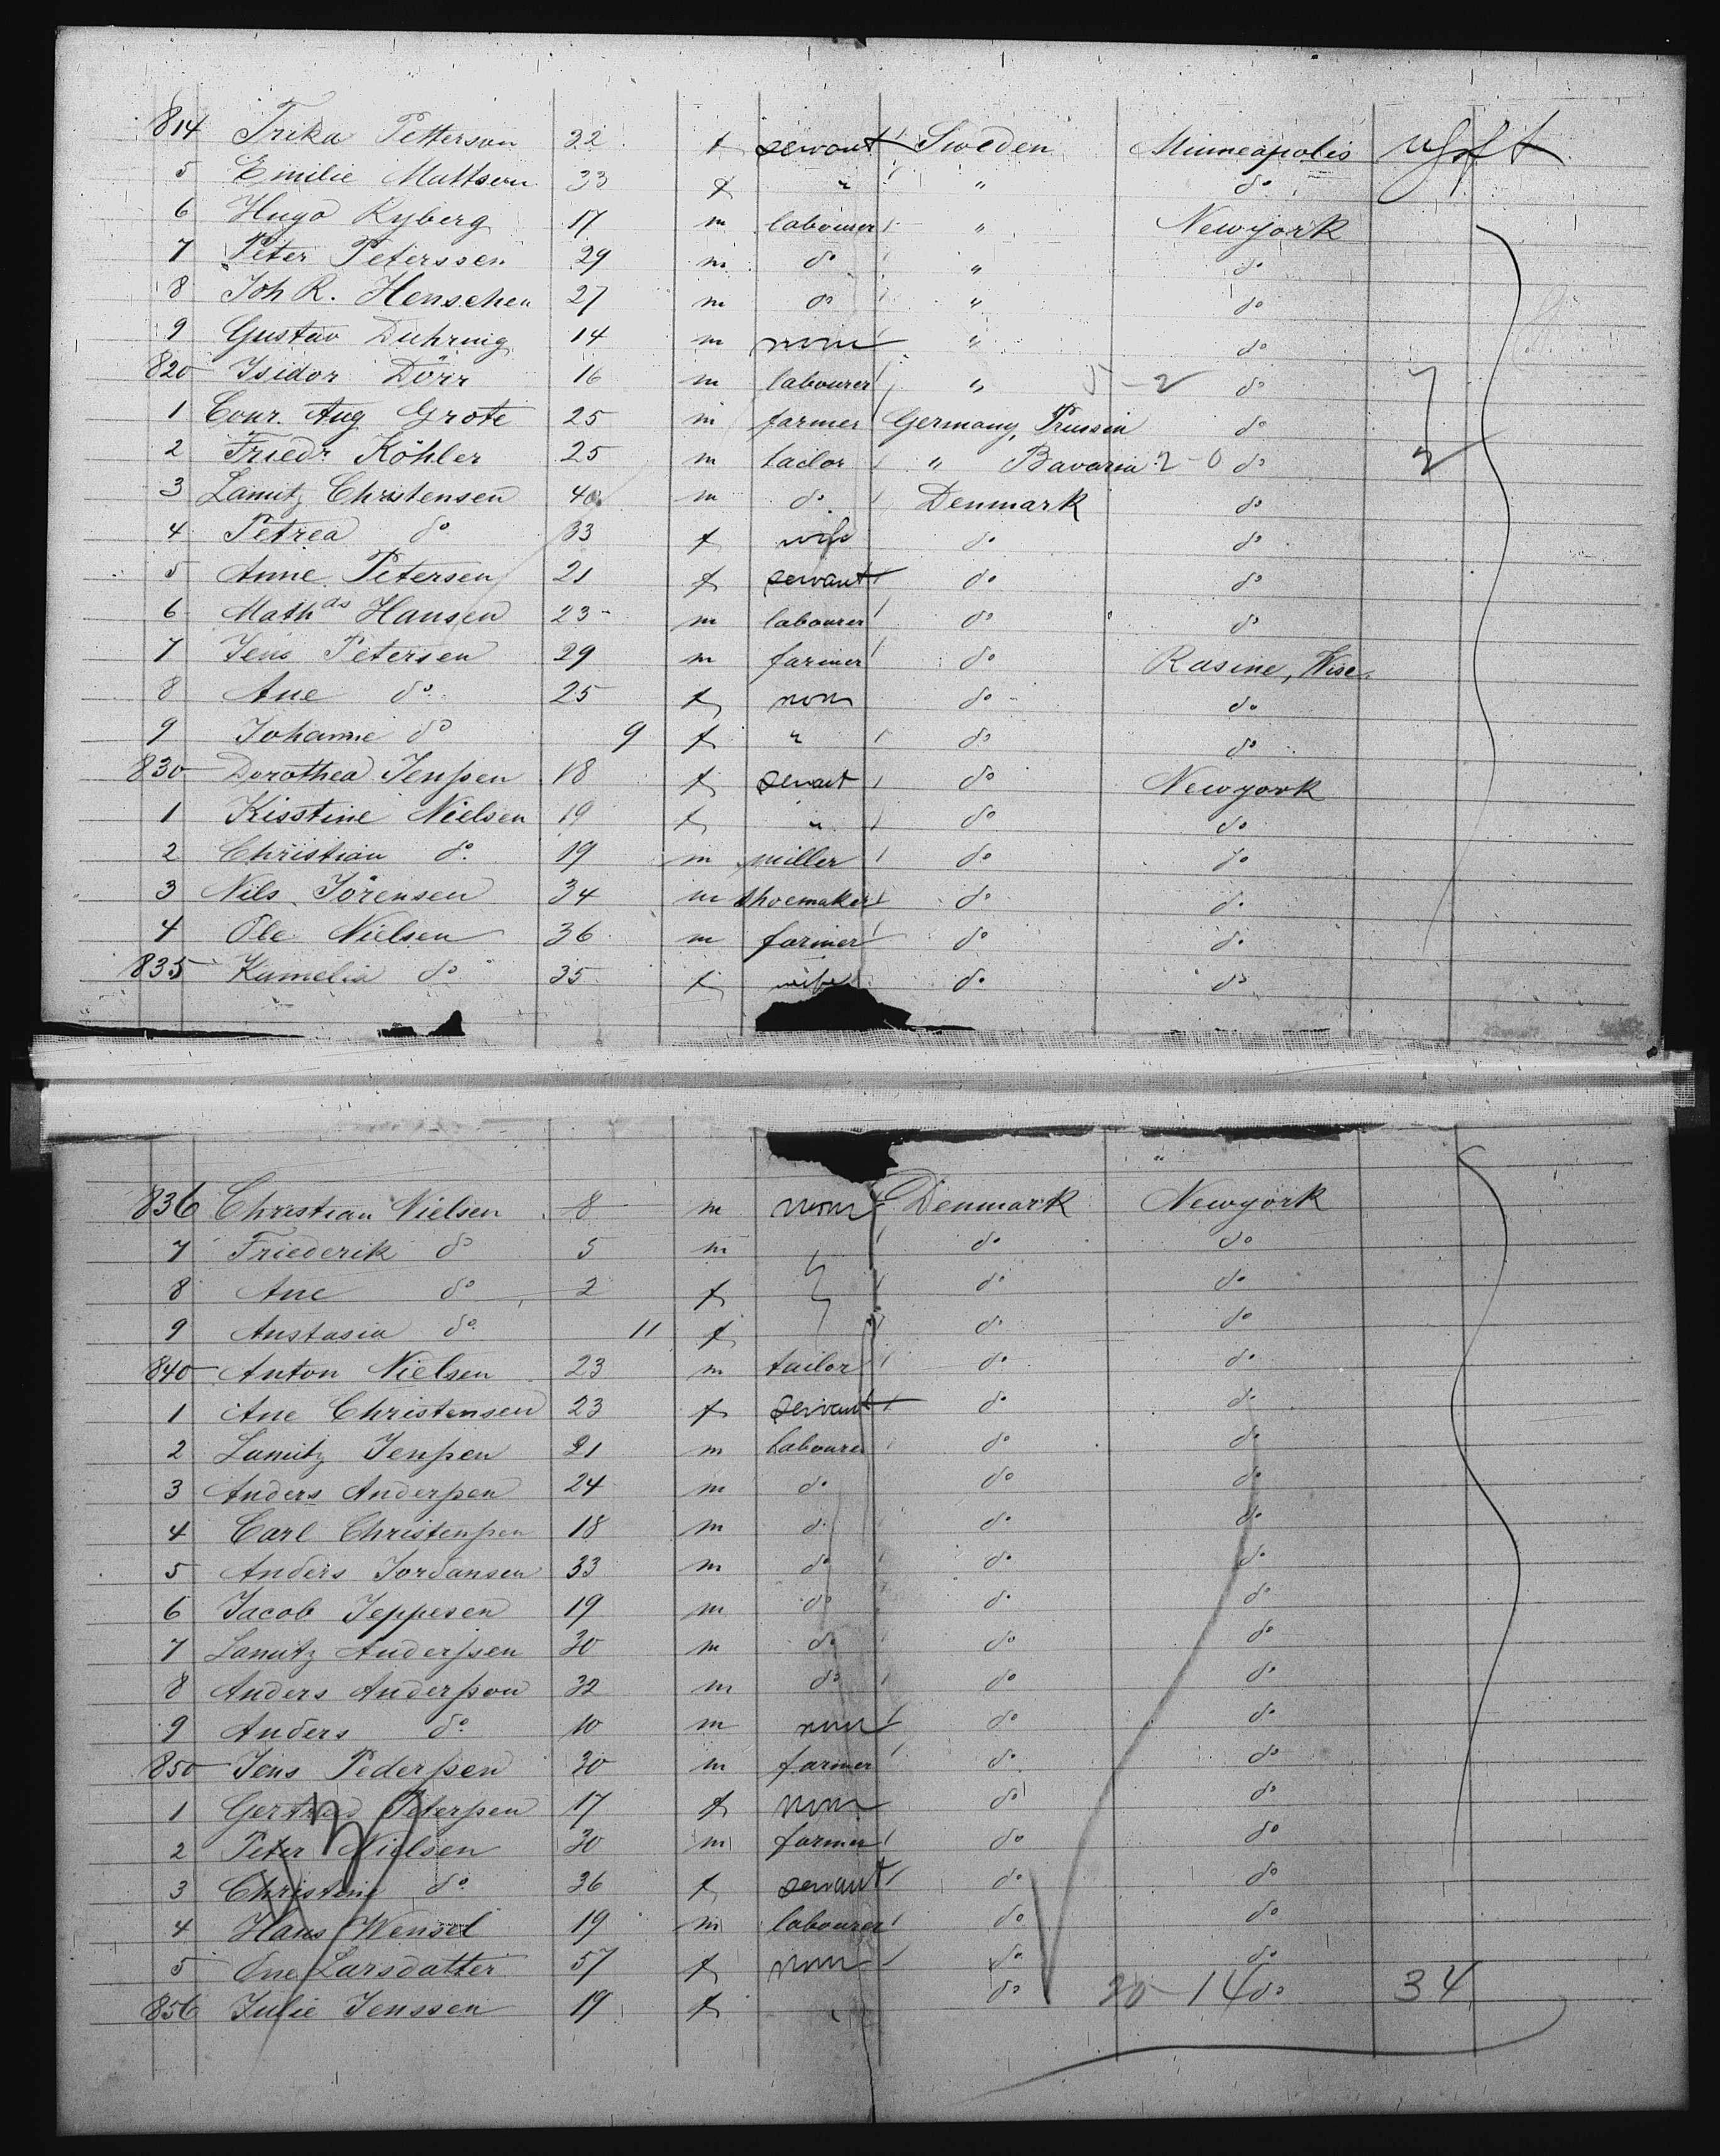 814 Trika Petterson 32 f servant Sweden Minneapolis
5 Emilie Mattson 33 f " " do
6 Hugo Ryberg 17 m labourer " Newyork
7 Peter Peterssen 29 m do " do
8 Joh R. Henschen 27 m do " do
9 Gustav Duhring 14 m none " do
820 Isidor Dörr 16 m labourer " 5-2 do
1 Conr. Aug Grote 25 m farmer Germany, Prussia do
2 Friedr Köhler 25 m tailor " Bavaria 2-0 do 2
3 Lamitz Christensen 40 m do Denmark do
4 Petrea do 33 f wife do do
5 Anne Petersen 21 f servant do do
6 Mathds Hansen 23 m labourer do do
7 Jens Petersen 29 m farmer do Rasine, Wisc.
8 Ane do 25 f non do do
9 Johanne do 9 f " do do
830 Dorothea Jenssen 18 f servant do Newyork
1 Kisstine Nielsen 19 f " do do
2 Christian do 19 m miller do do
3 Nils Jörensen 34 m shoemaker do do
4 Ole Nielsen 36 m farmer do do
835 Kamelia do 35 f wife do do
836 Christian Nielsen 8 m non Denmark Newyork
7 Friederik do 5 m do do
8 Ane do 2 f do do
9 Anstasia do 11 f do do
840 Anton Nielsen 23 m tailor do do
1 Ane Christensen 23 f servant do do
2 Lamitz Jenssen 21 m labourer do do
3 Anders Anderssen 24 m do do do
4 Carl Christenssen 18 m do do do
5 Anders Jordansen 33 m do do do
6 Jacob Jeppesen 19 m do do do
7 Lamitz Anderssen 30 m do do do
8 Anders Andersson 32 m do do do
9 Anders do 10 m non do do
850 Jens Pederssen 30 m farmer do do
1 Gertrud Peterssen 17 f non do do
2 Peter Nielsen 30 m farmer do do
3 Christine do 36 f servant do do
4 Hans Wensel 19 m labourer do do
5 Ane Larsdatter 57 f non do do
856 Julie Jenssen 19 f " do 20-14 do 34